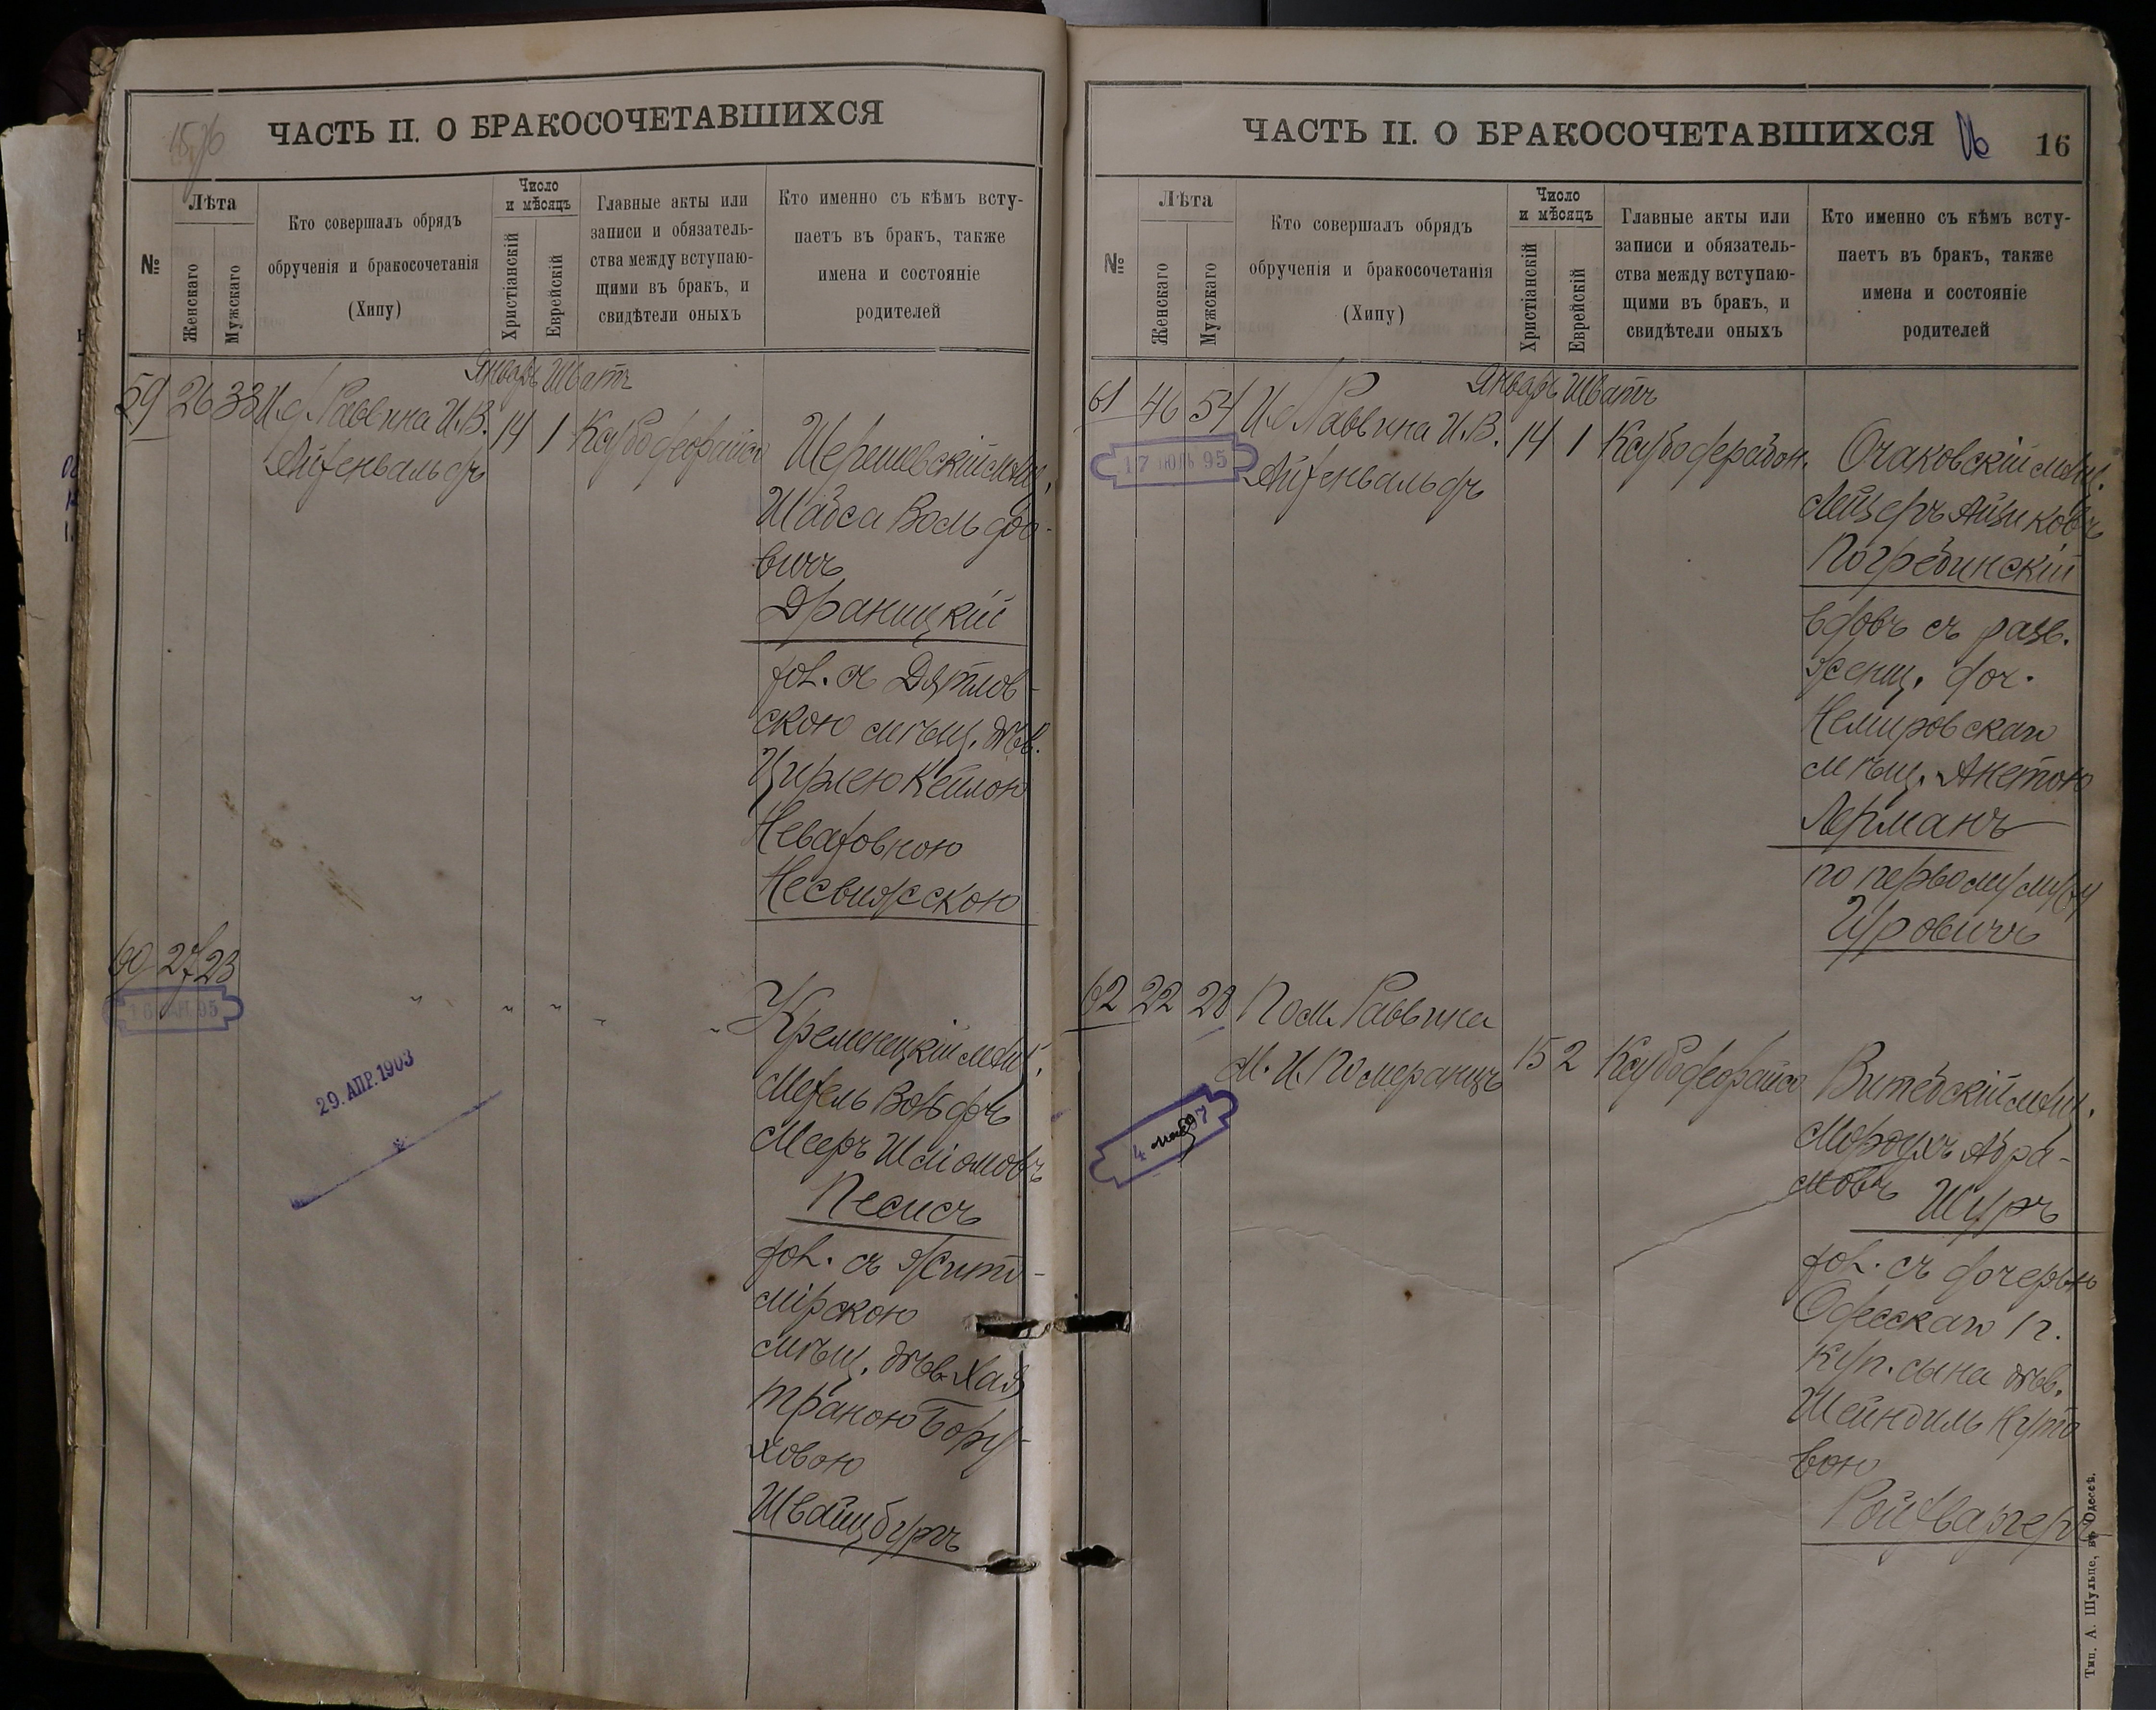 ЧАСТЬ II. О БРАКОСОЧЕТАВШИХСЯ
№
Лѣта
Женскаго
Мужскаго
Кто совершалъ обрядъ
обрученія и бракосочетанія
(Хипу)
Число
и мѣсяцъ
Христіанскій
Еврейскій
Главные акты или
записи и обязатель-
ства между вступаю-
щими въ бракъ, и
свидѣтели оныхъ
Кто именно съ кѣмъ всту-
паетъ въ бракъ, также
имена и состояніе
родителей
Январь Шватъ
59 26 33 И. д. Раввина И. В.
Айзенвальдъ
14 1
Шерешевскій мѣщ.
Шабса Вольфо-
вичъ
Драницкій
хол. съ Дятлов-
скою мѣщ. дѣв.
Цирлею Кейлою
Неваховною
Несвижскою
60 27 23
16 95
29. АПР. 1903
" " " " "
Кременецкій мѣщ.
Мехель Вольфъ
Мееръ Шліомовъ
Песисъ
хол. съ Жито-
мірскою
мѣщ. дѣв. Хая
Траною Бору-
ховою
Швайцбургъ
ЧАСТЬ II. О БРАКОСОЧЕТАВШИХСЯ
16
№
Лѣта
Женскаго
Мужскаго
Кто совершалъ обрядъ
обрученія и бракосочетанія
(Хипу)
Число
и мѣсяцъ
Христіанскій
Еврейскій
Главные акты или
записи и обязатель-
ства между вступаю-
щими въ бракъ, и
свидѣтели оныхъ
Кто именно съ кѣмъ всту-
паетъ въ бракъ, также
имена и состояніе
родителей
Январь Шватъ
61 46 54 И. д. Раввина И. В.
Айзенвальдъ
14 1
17 95
Очаковскій мѣщ.
Лейзеръ Айзиковъ
Погребинскій
вдовъ съ разв.
женщ. доч.
Немировскаго
мѣщ. Анетою
Лерманъ
по первому мужу
Гуровичъ
62 22 28 Пом. Раввина
М. И. Померанцъ
15 2
4 97
Витебскій мѣщ.
Мордухъ Абра-
мовъ Шуръ
хол. съ дочерью
Одесскаго 1 г.
куп. сына дѣв.
Шейндиль Нуто
вою
Ройхваргеръ
Тип. А. Шульце, въ Одессѣ.